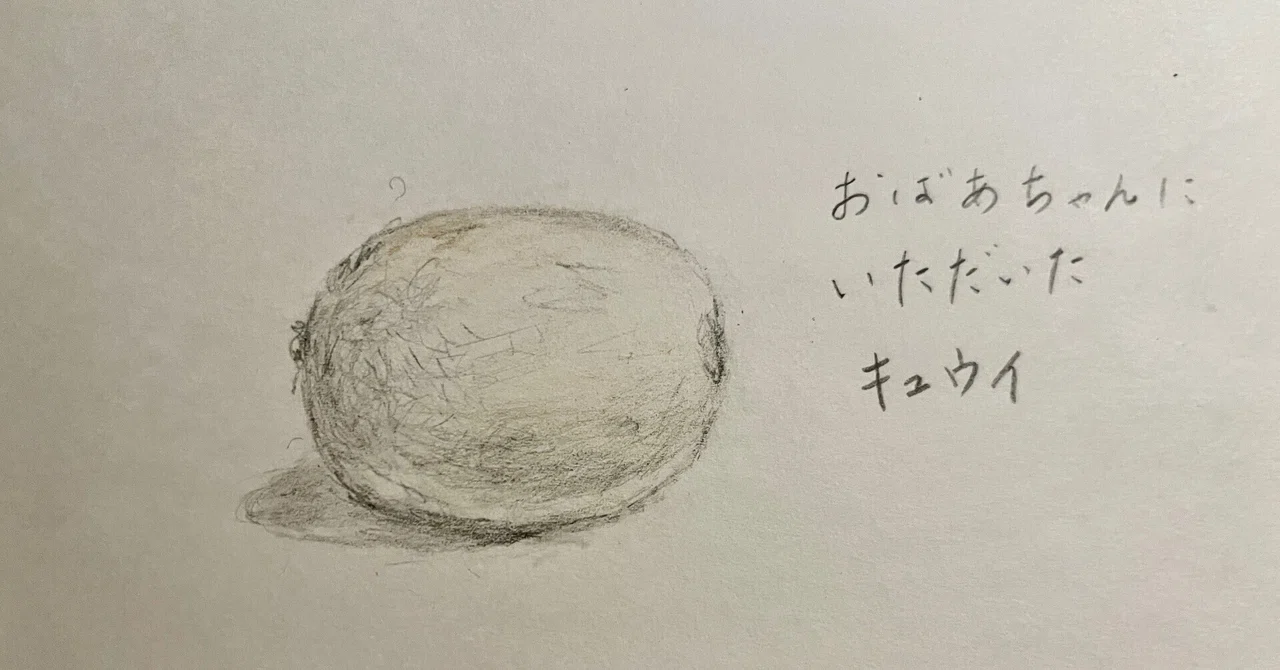 おばあちゃんに
いただいた
キュウイ